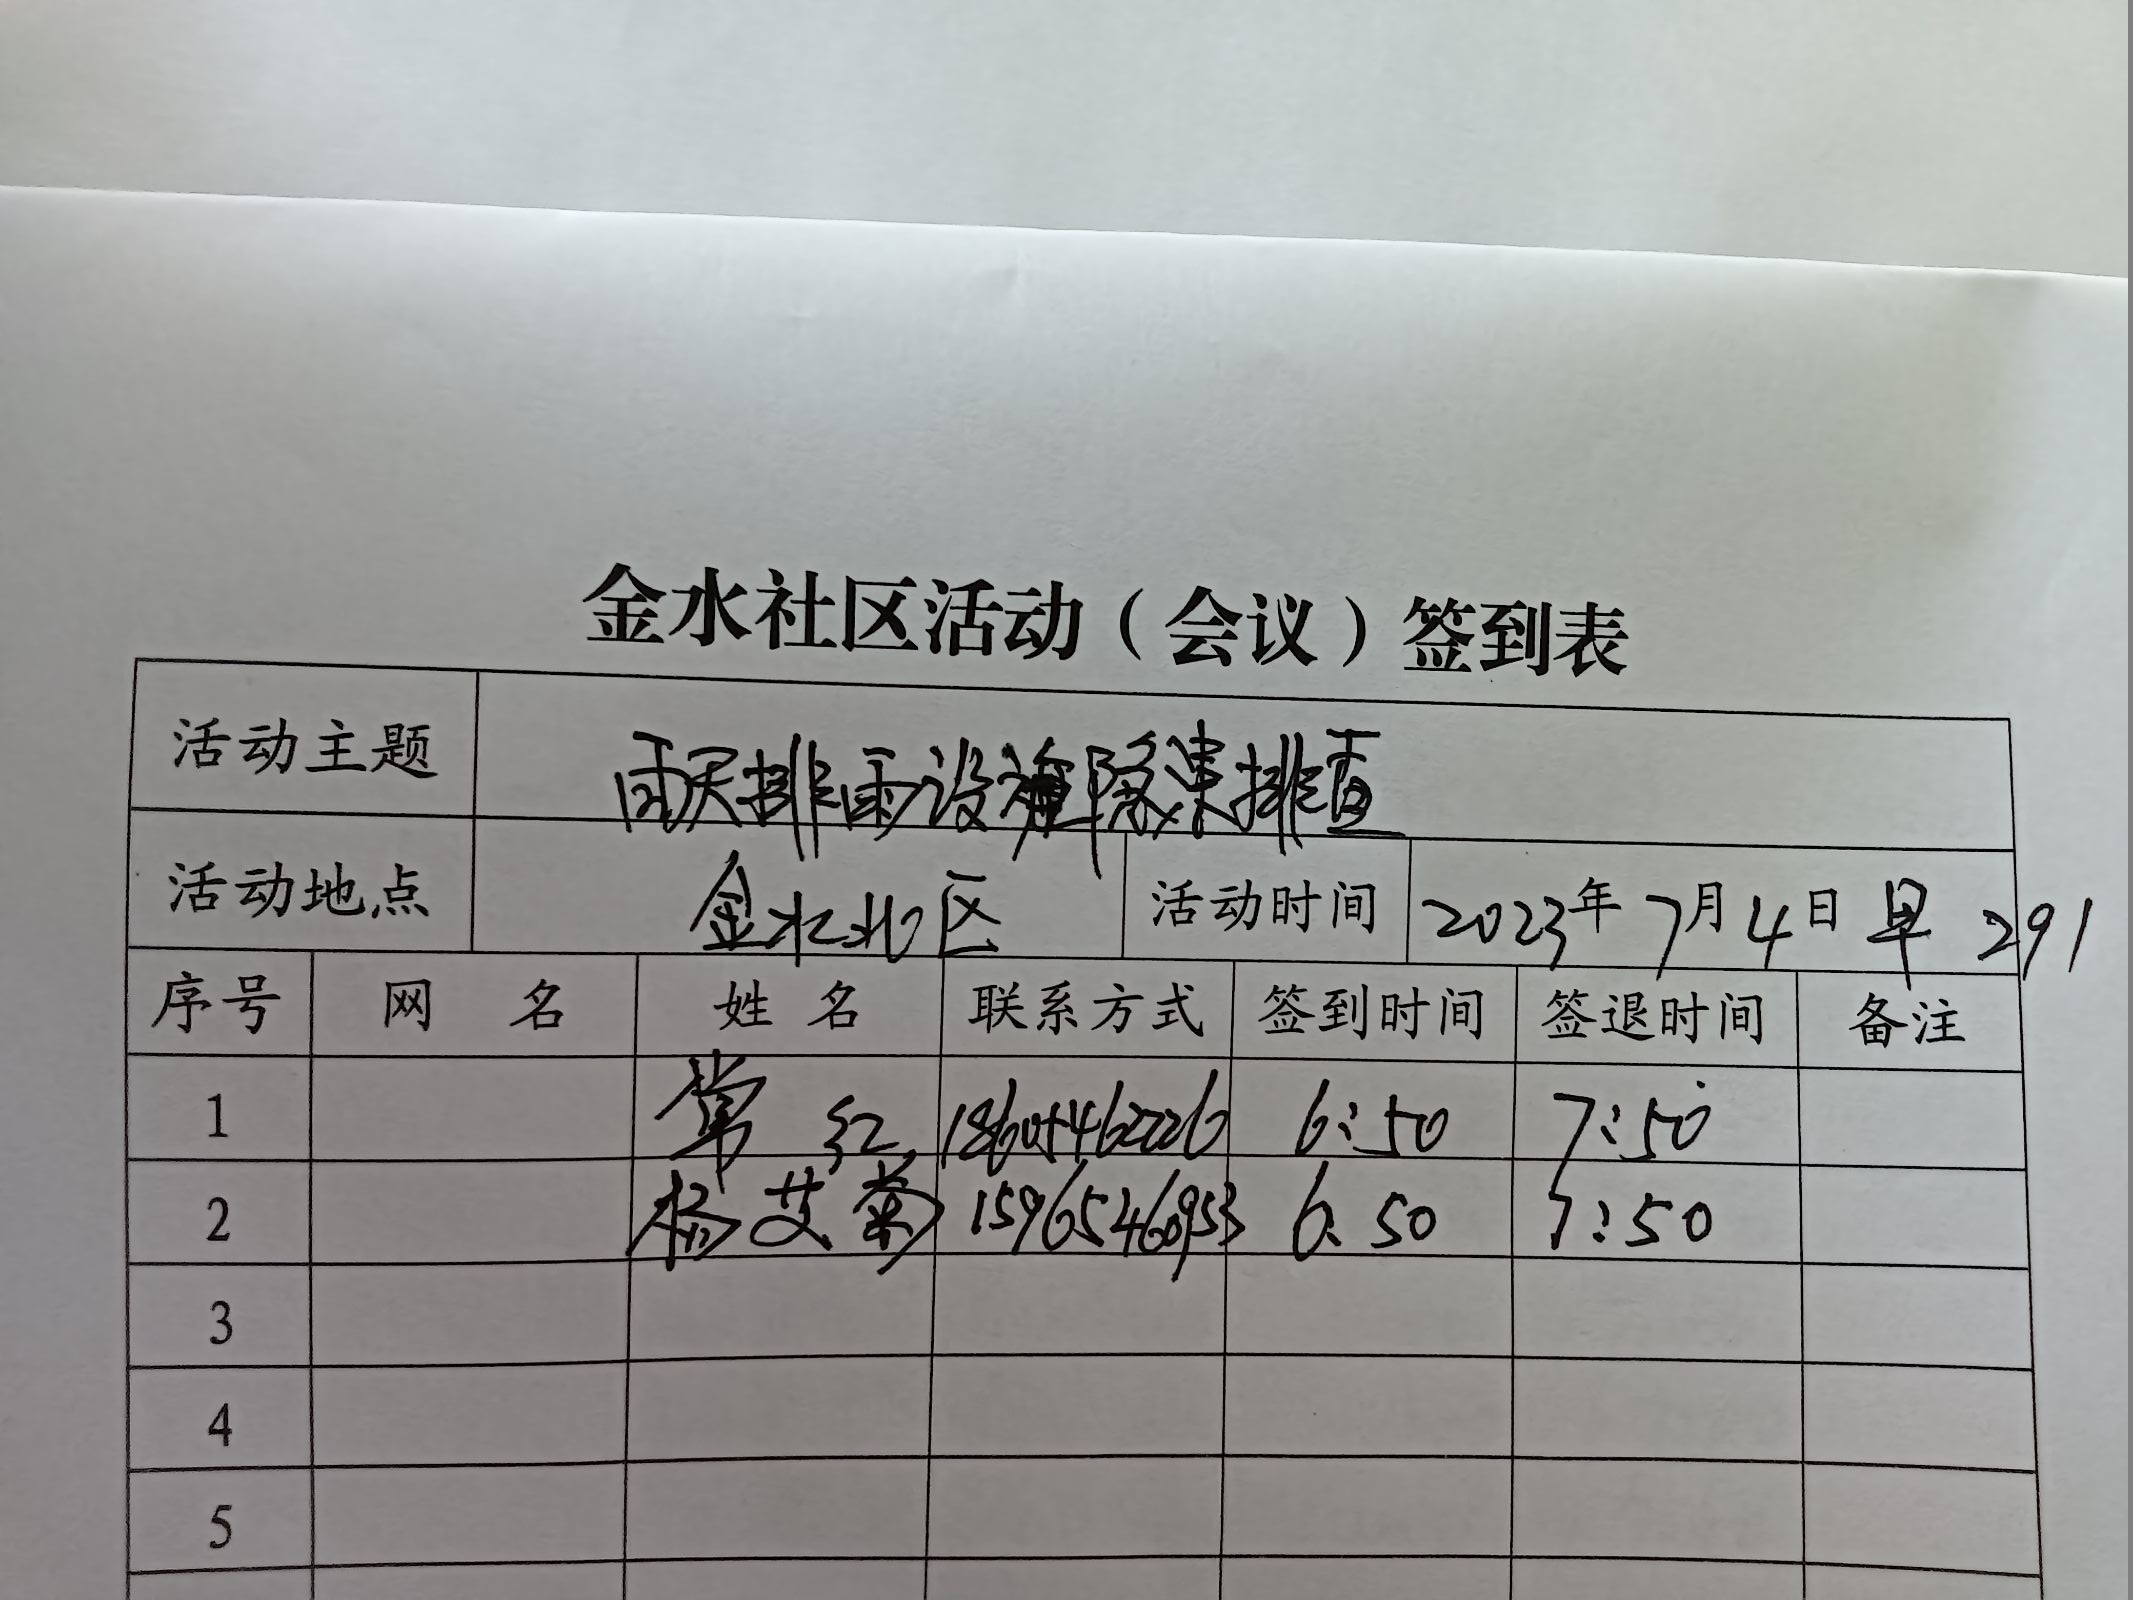 金水社区活动（会议）签到表
活动主题 雨天排雨设施隐患排查
活动地点 金水北区 活动时间 2023年7月4日 早 291
序号 网 名 姓 名 联系方式 签到时间 签退时间 备注
1 常红 6:50 7:50
2 杨艾菊 15965460953 6:50 7:50
3
4
5